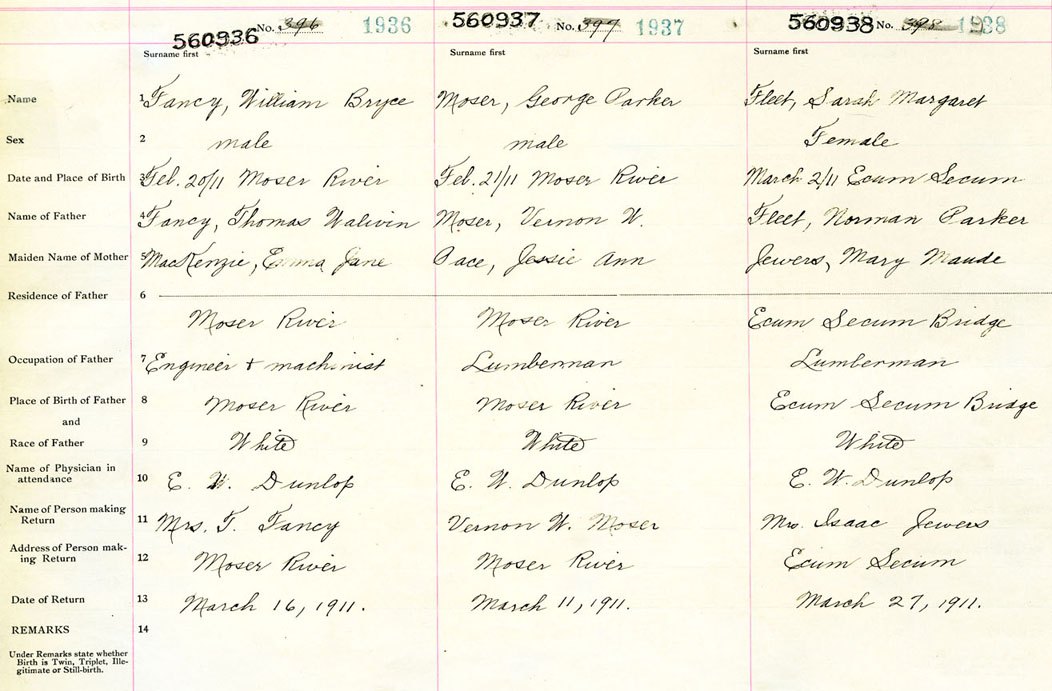 560936 No. 396 1936 560937 No. 397 1937 560938 No. 398 1938
Surname first Surname first Surname first
Name 1 Fancy, William Bryce Moser, George Parker Fleet, Sarah Margaret
Sex 2 male male Female
Date and Place of Birth 3 Feb. 20/11 Moser River Feb. 21/11 Moser River March 2/11 Ecum Secum
Name of Father 4 Fancy, Thomas Walivin Moser, Vernon W. Fleet, Norman Parker
Maiden Name of Mother 5 MacKenzie, Emma Jane Pace, Jessie Ann Jewers, Mary Maude
Residence of Father 6
Moser River Moser River Ecum Secum Bridge
Occupation of Father 7 Engineer + machinist Lumberman Lumberman
Place of Birth of Father 8 Moser River Moser River Ecum Secum Bridge
and
Race of Father 9 White White White
Name of Physician in
attendance 10 E. W. Dunlop E. W. Dunlop E. W. Dunlop
Name of Person making
Return 11 Mrs. T. Fancy Vernon W. Moser Mrs. Isaac Jewers
Address of Person mak-
ing Return 12 Moser River Moser River Ecum Secum
Date of Return 13 March 16, 1911. March 11, 1911. March 27, 1911.
REMARKS 14
Under Remarks state whether
Birth is Twin, Triplet, Ille-
gitimate or Still-birth.